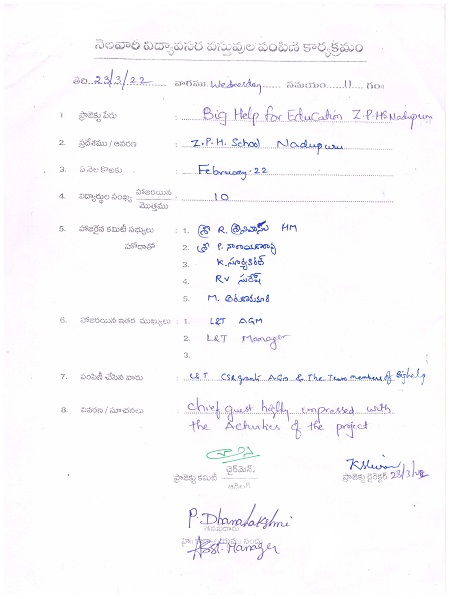 నెలవారీ విద్యావసర వస్తువుల పంపిణీ కార్యక్రమం
తేది 23/3/22 వారము Wednesday సమయం 11 గం
1. ప్రాజెక్టు పేరు : Big Help for Education Z.P.HS Nadupuru
2. ప్రదేశము / ఆవరణ : Z.P.H. School Nadupuru
3. ఏ నెల కొరకు : February-22
4. విద్యార్థుల సంఖ్య హాజరయిన / మొత్తము : 10
5. హాజరైన కమిటీ సభ్యులు : 1. శ్రీ R. శ్రీనివాస్ HM
హోదాతో 2. శ్రీ P.
3. K.
4. RV సురేష్
5. M. అరుణకుమారి
6. హాజరయిన ఇతర ముఖ్యులు : 1. L&T AGM
2. L&T Manager
3.
7. పంపిణీ చేసిన వారు : L&T CSR AGM & The Team members of Bighelp
8. వివరణ / సూచనలు : chief guest highly impressed with
the Activities of the project
ప్రాజెక్టు కమిటీ ఛైర్మెన్,
ప్రాజెక్టు డైరెక్టర్ 23/3/22
P. Dhanalakshmi
Asst. Manager